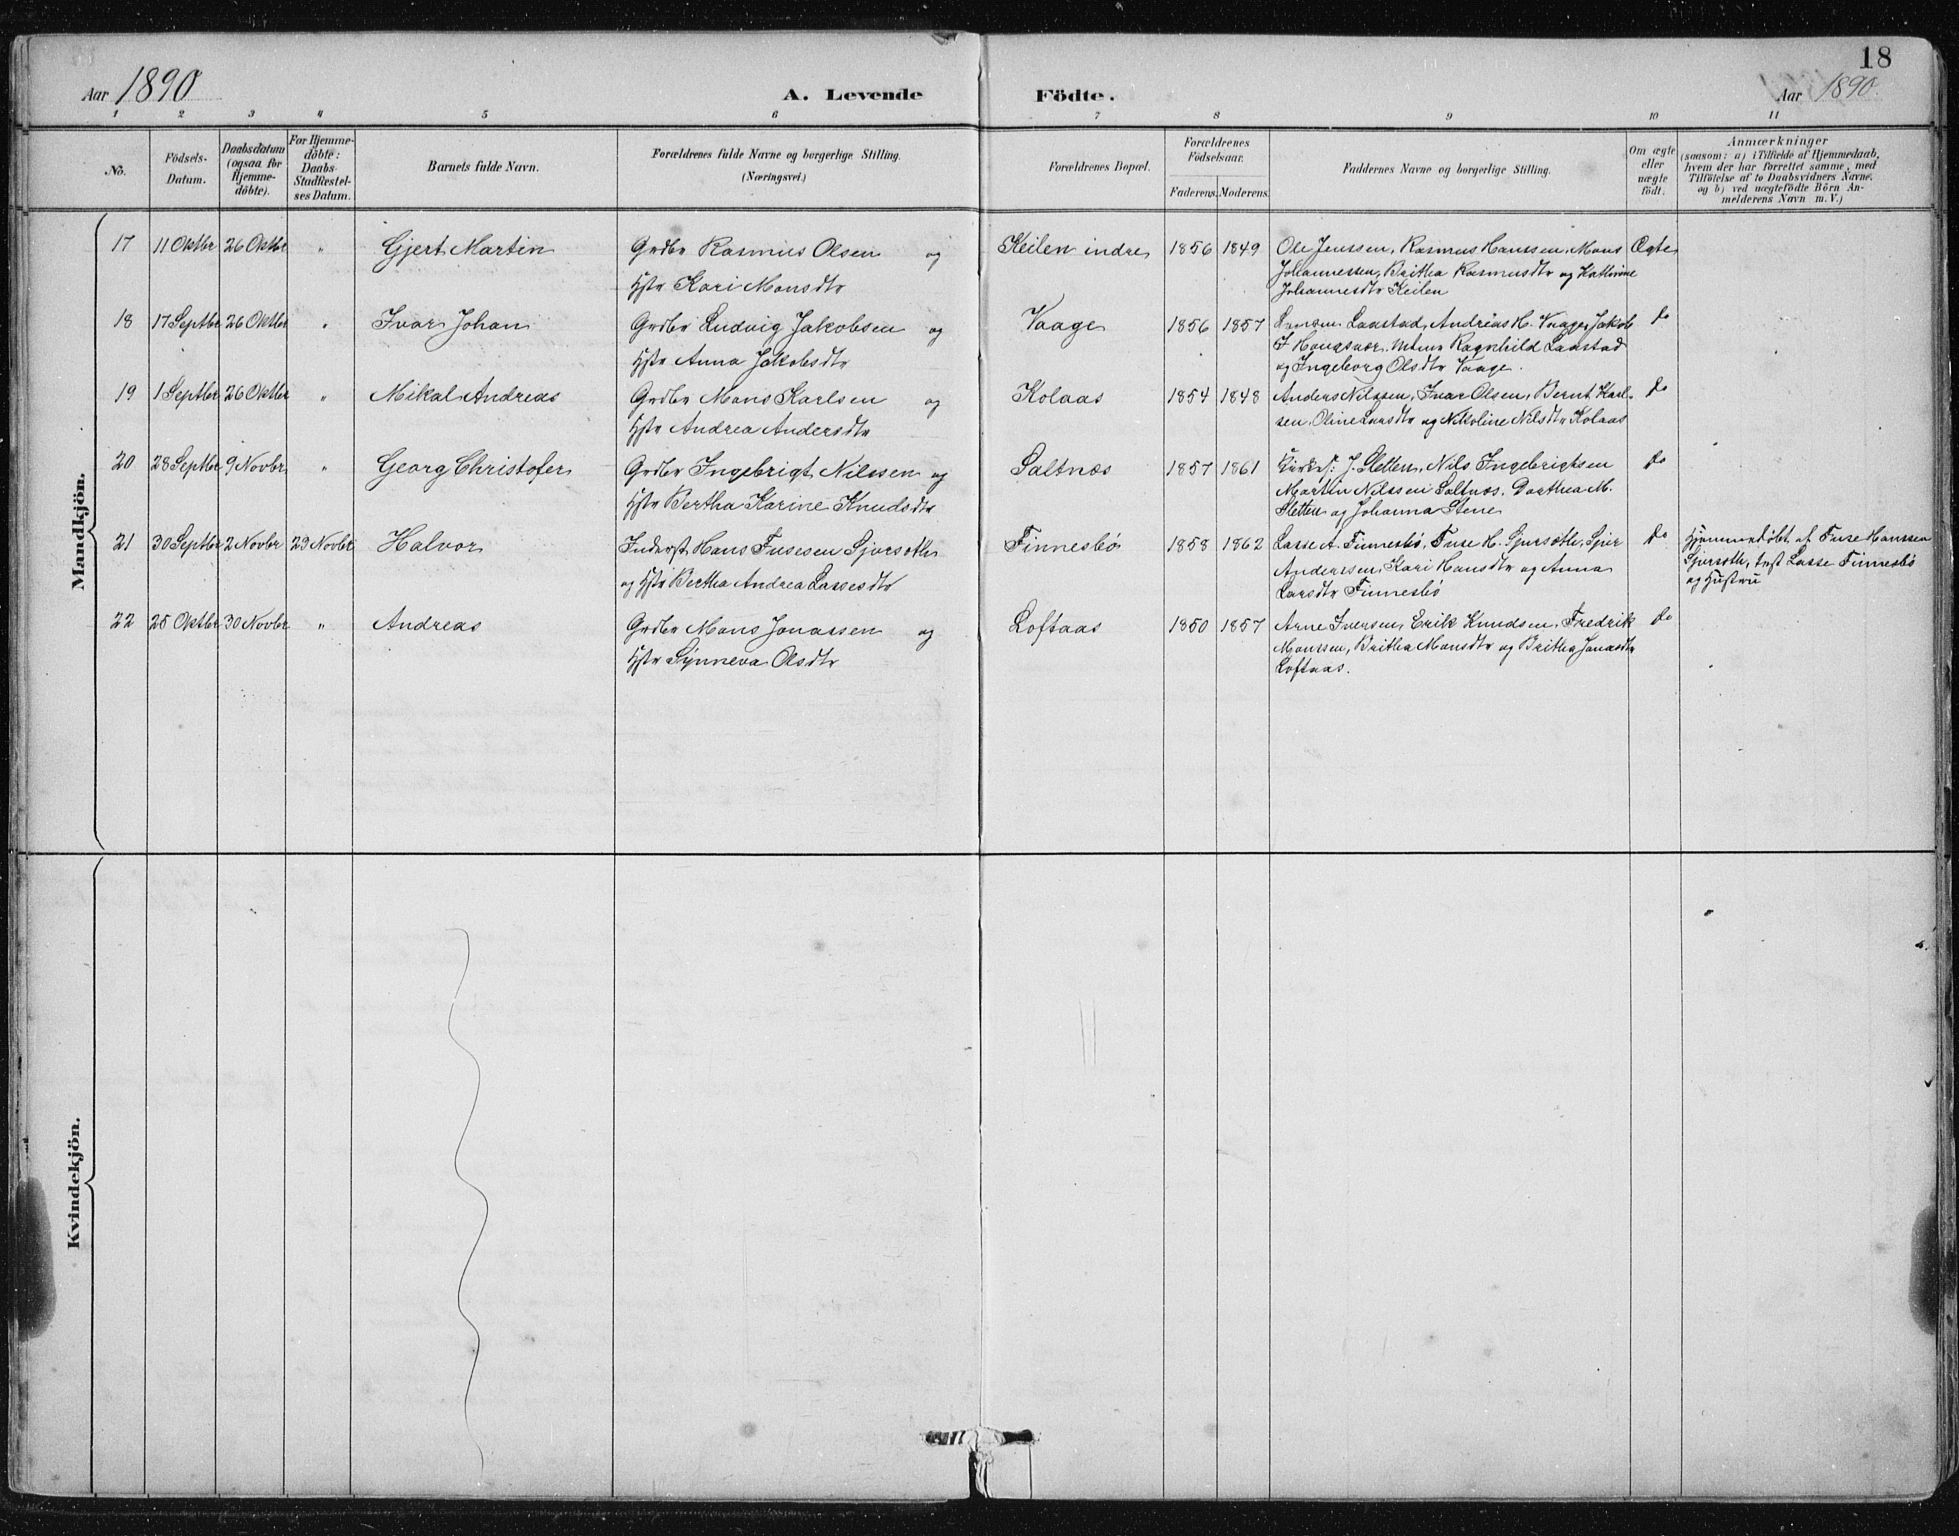 18
Aar 1890 A. Levende Födte. Aar 1890.
1 2 3 4 5 6 7 8 9 10 11
No.
Födsels-Datum.
Daabsdatum (ogsaa for Hjemme-döbte).
For Hjemme-döbte: Daabs-Stadfæstel-ses Datum.
Barnets fulde Navn.
Forældrenes fulde Navne og borgerlige Stilling.
(Næringsvei.)
Forældrenes Bopæl.
Forældrenes Födselsaar.
Faderens. Moderens.
Faddernes Navne og borgerlige Stilling.
Om ægte eller uægte födt.
Anmærkninger
(saasom: a) i Tilfælde af Hjemmedaab,
hvem der har forrettet samme, med
Tilföielse af to Daabsvidners Navne,
og b) ved uægtefödte Börn An-
melderens Navn m. V.)
Mandkjön.
17 11 Oktbr 26 Oktbr " Gjert Martin Grdbr Rasmus Olsen og Keilen indre 1856 1849 Ole Jenssen, Rasmus Hanssen, Mons Ægte
Hstr Kari Monsdtr Johannessen, Britha Rasmusdtr og Kathrine
Johannesdtr Keilen
18 17 Septbr 26 Oktbr " Ivar Johan Grdbr Ludvig Jakobsen og Vaage 1856 1857 Laastad, Andreas H. Vaage, Jakob do
Hstr Anna Jakobsdtr Ragnhild Laastad
og Ingeborg Olsdtr Vaage.
19 1 Septbr 26 Oktbr " Mikal Andreas Grdbr Mons Karlsen og Kolaas 1854 1848 Anders Nilssen, Ivar Olsen, Bernt Karl- do
Hstr Andrea Andersdtr sen, Oline Larsdtr og Nikoline Nilsdtr Kolaas
20 28 Septbr 9 Novbr. " Georg Christofer Grdbr Ingebrigt Nilssen og Saltnæs 1857 1861 J. Sletten, Nils Ingebrigtsen do
Hstr Bertha Karine Knudsdtr Martin Nilssen Saltnæs. Dorthea M.
Sletten og Johanna Stene
21 30 Septbr 2 Novbr 23 Novbr Halvor Inderst Hans Fusesen Sjursæth Finnesbø 1858 1862 Lasse A. Finnesbø, Fuse H. Sjursæth, Sjur do Hjemmedøbt af Fuse Hanssen
og Hstr Bertha Andrea Lassesdtr Anderssen, Kari Hansdtr og Anna Sjursæth, test Lasse Finnesbø
Larsdtr Finnesbø og Hustru
22 25 Oktbr 30 Novbr " Andreas Grdbr Mons Jonassen og Loftaas 1850 1857 Arne Iversen, Erik Knudsen, Fredrik do
Hstr Synneva Olsdtr Monssen, Britha Monsdtr og Britha Jonasdtr
Loftaas.
Kvindekjön.